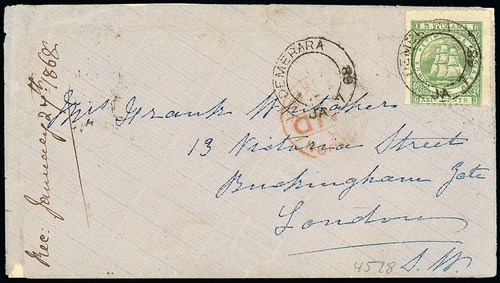 Rec: January 24th 1868
DEMERARA
JA 7
68
DEMERARA
JA
XXIV CENTS
PAID
Mrs Frank Whitaker
13 Victoria Street
Buckingham Gate
London
S.W.
4528